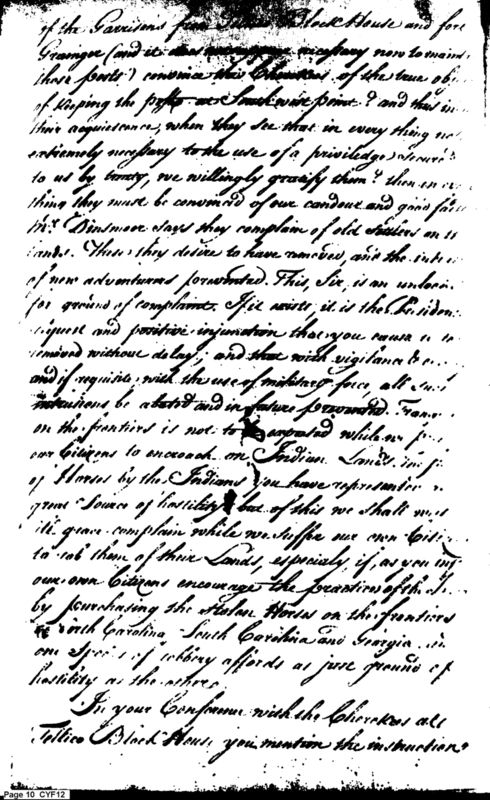 of the Garrisons from Tellico Block House and fore
Grainger (and it does not appear necessary now to maint
those posts) convince the Cherokees of the true obj
of keeping the posts at South west point? and thus in
their acquiescence, when they see that in every thing no
extremely necessary to the use of a priviledge secure
to us by treaty, we willingly gratify them? then in eve
thing they must be convinced of our candour and good fait
Mr. Dinsmoor says they complain of old settlers on th
lands. These they desire to have removed, and the int
of new adventurers prevented. This, Sir, is an unlook
for ground of complaint. If it exists, it is the Presiden
request and positive injunction that you cause it
removed without delay; and that with vigilance &
and if requisite with the use of military force, all such
intrusions be abated and in future prevented. Tran
on the frontiers is not to be expected while we
our Citizens to encroach on Indian Lands.
of Horses by the Indians you have represented
great Source of hostility but of this we shall
ill grace complain while we suffer our own Citi
to rob them of their Lands, especialy, if, as you inf
our own Citizens encourage the practices of the
by purchasing the stolen Horses on the frontiers
North Carolina South Carolina and Georgia.
one Species of robbery affords as just ground of
hostility as the other.
In your Conference with the Cherokees at
Tellico Block House you mention the instruction
Page 10 CYF12